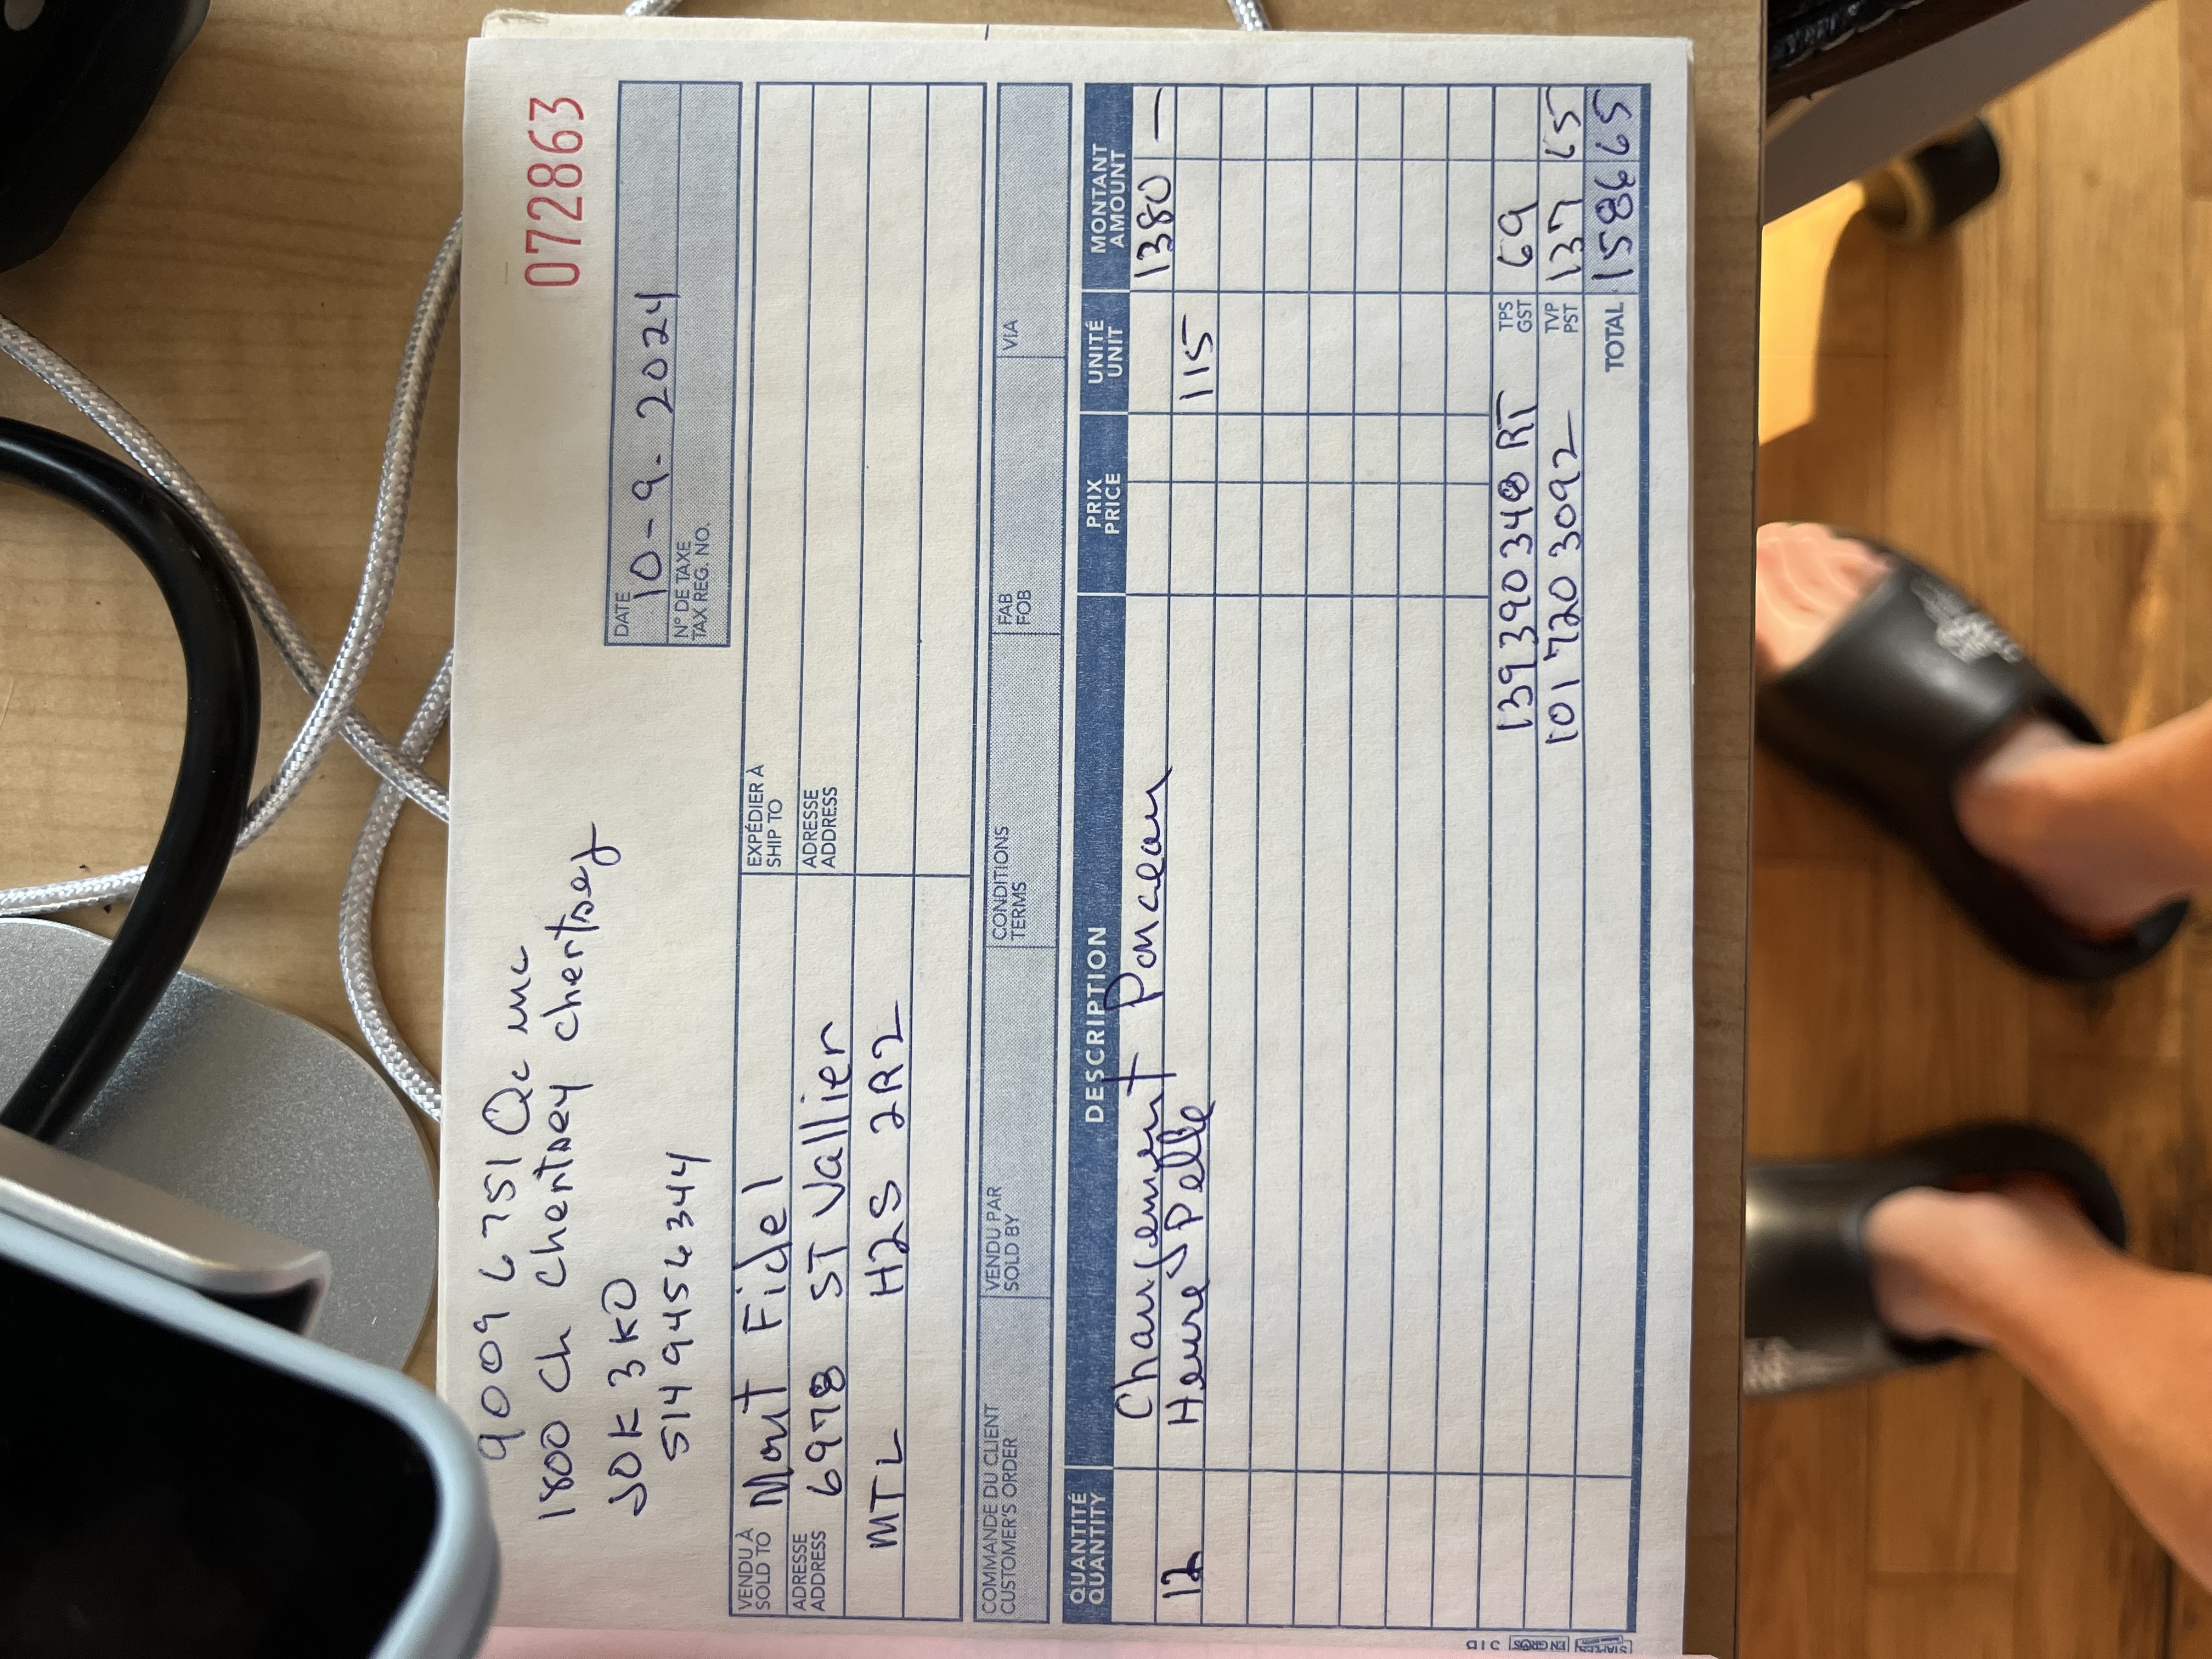 90096751 Qc inc
1800 Ch Chertsey Chertsey
J0K 3K0
514 9456344
072863
DATE 10-9-2024
N° DE TAXE
TAX REG. NO.
VENDU À
SOLD TO
Mout Fidel
ADRESSE
ADDRESS
6978 ST Vallier
MTL H2S 2R2
EXPÉDIER À
SHIP TO
ADRESSE
ADDRESS
COMMANDE DU CLIENT
CUSTOMER'S ORDER
VENDU PAR
SOLD BY
CONDITIONS
TERMS
FAB
FOB
VIA
QUANTITÉ
QUANTITY
DESCRIPTION
PRIX
PRICE
UNITÉ
UNIT
MONTANT
AMOUNT
Changement Ponceau 1380 —
12 Heure Pelle 115
139390348 RT TPS GST 69
101 720 3092 TVP PST 137 65
TOTAL 1586 65
STAPLES EN GROS